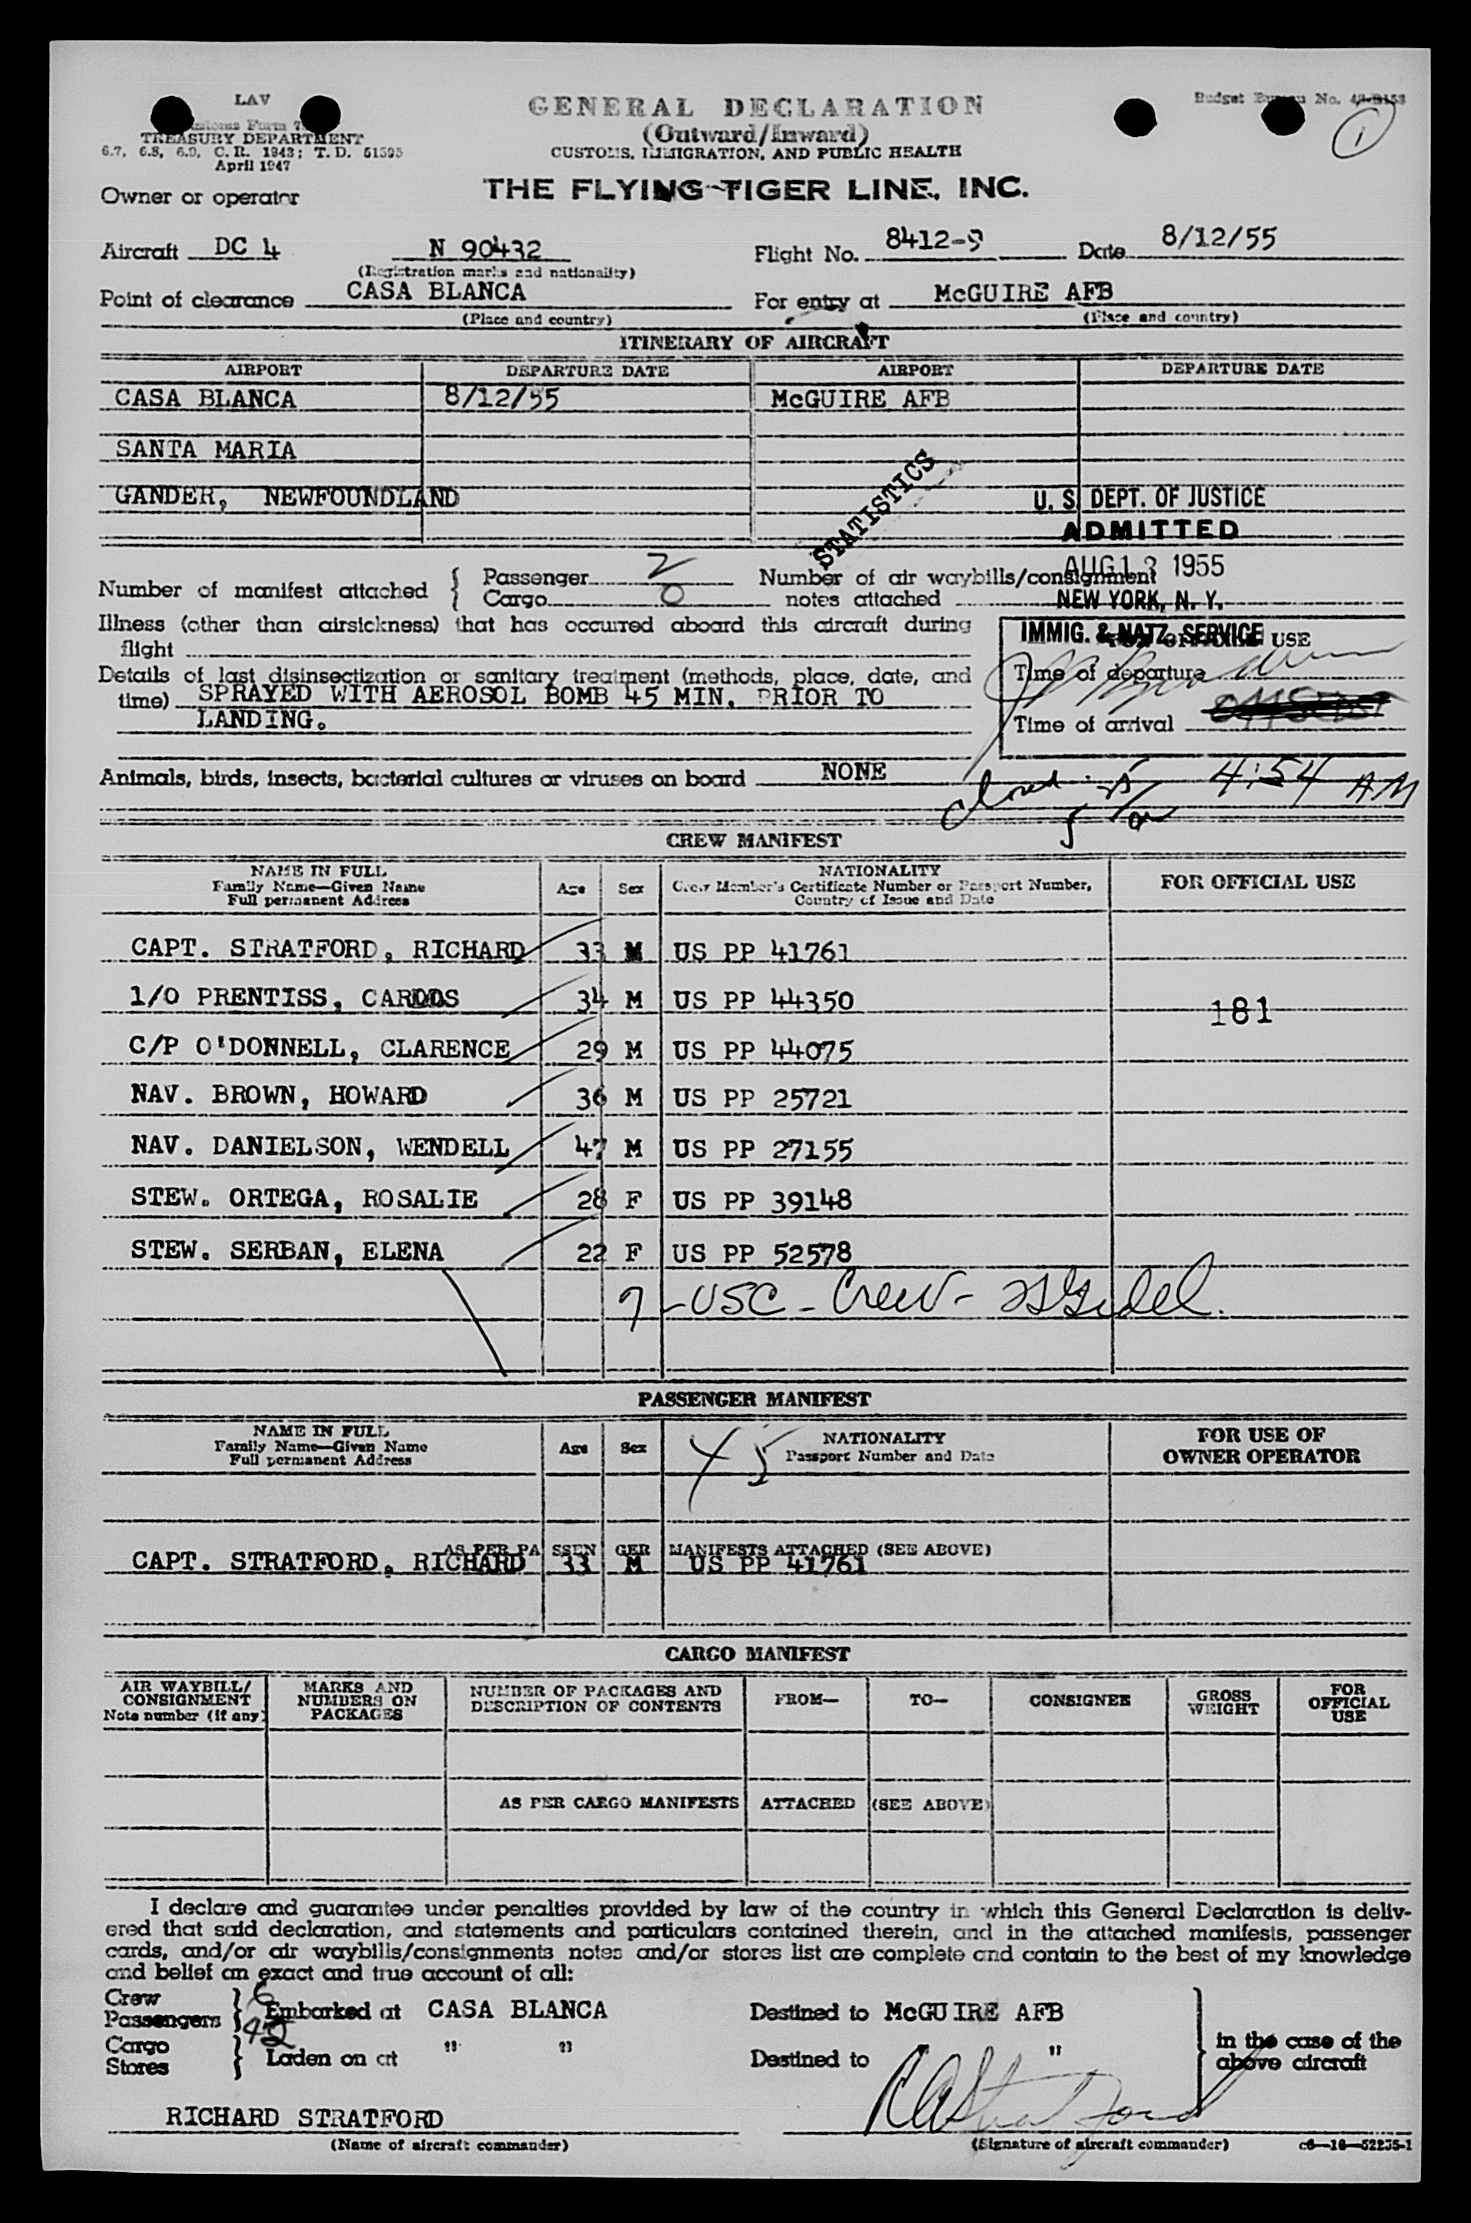 LAV
TREASURY DEPARTMENT
6.7, 6.8, 6.9, C. R. 1943; T. D. 51595
April 1947
GENERAL DECLARATION
(Outward/Inward)
CUSTOMS, IMMIGRATION, AND PUBLIC HEALTH
Budget Bureau No.
1
THE FLYING TIGER LINE, INC.
Owner or operator
Aircraft DC 4 N 90432 Flight No. 8412-9 Date 8/12/55
(Registration marks and nationality)
Point of clearance CASA BLANCA For entry at McGUIRE AFB
(Place and country) (Place and country)
ITINERARY OF AIRCRAFT
AIRPORT DEPARTURE DATE AIRPORT DEPARTURE DATE
CASA BLANCA 8/12/55 McGUIRE AFB
SANTA MARIA
GANDER, NEWFOUNDLAND
STATISTICS
U. S. DEPT. OF JUSTICE
ADMITTED
AUG 13 1955
NEW YORK, N. Y.
IMMIG. & NATZ. SERVICE
Number of manifest attached { Passenger 2 Number of air waybills/consignment
Cargo 0 notes attached
Illness (other than airsickness) that has occurred aboard this aircraft during
flight
FOR OFFICIAL USE
Details of last disinsectization or sanitary treatment (methods, place, date, and
time) SPRAYED WITH AEROSOL BOMB 45 MIN. PRIOR TO
LANDING.
Time of departure
Time of arrival
4:54 AM
Animals, birds, insects, bacterial cultures or viruses on board NONE
CREW MANIFEST
NAME IN FULL Age Sex NATIONALITY FOR OFFICIAL USE
Family Name—Given Name Crew Member's Certificate Number or Passport Number,
Full permanent Address Country of Issue and Date
CAPT. STRATFORD, RICHARD 33 M US PP 41761
1/O PRENTISS, 34 M US PP 44350 181
C/P O'DONNELL, CLARENCE 29 M US PP 44075
NAV. BROWN, HOWARD 36 M US PP 25721
NAV. DANIELSON, WENDELL 47 M US PP 27155
STEW. ORTEGA, ROSALIE 28 F US PP 39148
STEW. SERBAN, ELENA 22 F US PP 52578
7 - USC - Crew -
PASSENGER MANIFEST
NAME IN FULL Age Sex NATIONALITY FOR USE OF
Family Name—Given Name Passport Number and Date OWNER OPERATOR
Full permanent Address
45
AS PER PASSENGER MANIFESTS ATTACHED (SEE ABOVE)
CAPT. STRATFORD, RICHARD 33 M US PP 41761
CARGO MANIFEST
AIR WAYBILL/ MARKS AND NUMBER OF PACKAGES AND FROM— TO— CONSIGNEE GROSS FOR
CONSIGNMENT NUMBERS ON DESCRIPTION OF CONTENTS WEIGHT OFFICIAL
Note number (if any) PACKAGES USE
AS PER CARGO MANIFESTS ATTACHED (SEE ABOVE)
I declare and guarantee under penalties provided by law of the country in which this General Declaration is deliv-
ered that said declaration, and statements and particulars contained therein, and in the attached manifests, passenger
cards, and/or air waybills/consignments notes and/or stores list are complete and contain to the best of my knowledge
and belief an exact and true account of all:
Crew 6
Passengers 42 } Embarked at CASA BLANCA Destined to McGUIRE AFB
Cargo " " "
Stores } Laden on at Destined to
in the case of the
above aircraft
RICHARD STRATFORD RA Stratford
(Name of aircraft commander) (Signature of aircraft commander) c6—16—52235-1